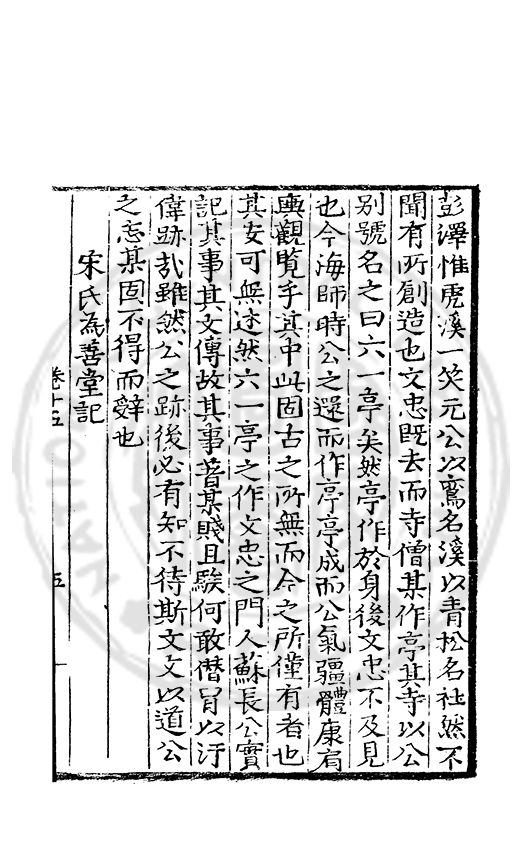 彭澤惟虎溪一笑元公以鸞名溪以青松名社然不
聞有所創造也文忠既去而寺僧某作亭其寺以公
别號名之曰六一亭矣然亭作於身後文忠不及見
也今海師時公之還而作亭亭成而公氣疆體康肩
輿觀覧乎其中此固古之所無而今之所僅有者也
其安可無述然六一亭之作文忠之門人蘇長公實
記其事其文傳故其事著某賤且騃何敢僭冒以汙
偉跡哉雖然公之跡後必有知不待斯文文以道公
之志某固不得而辭也
宋氏為善堂記
卷十五
五